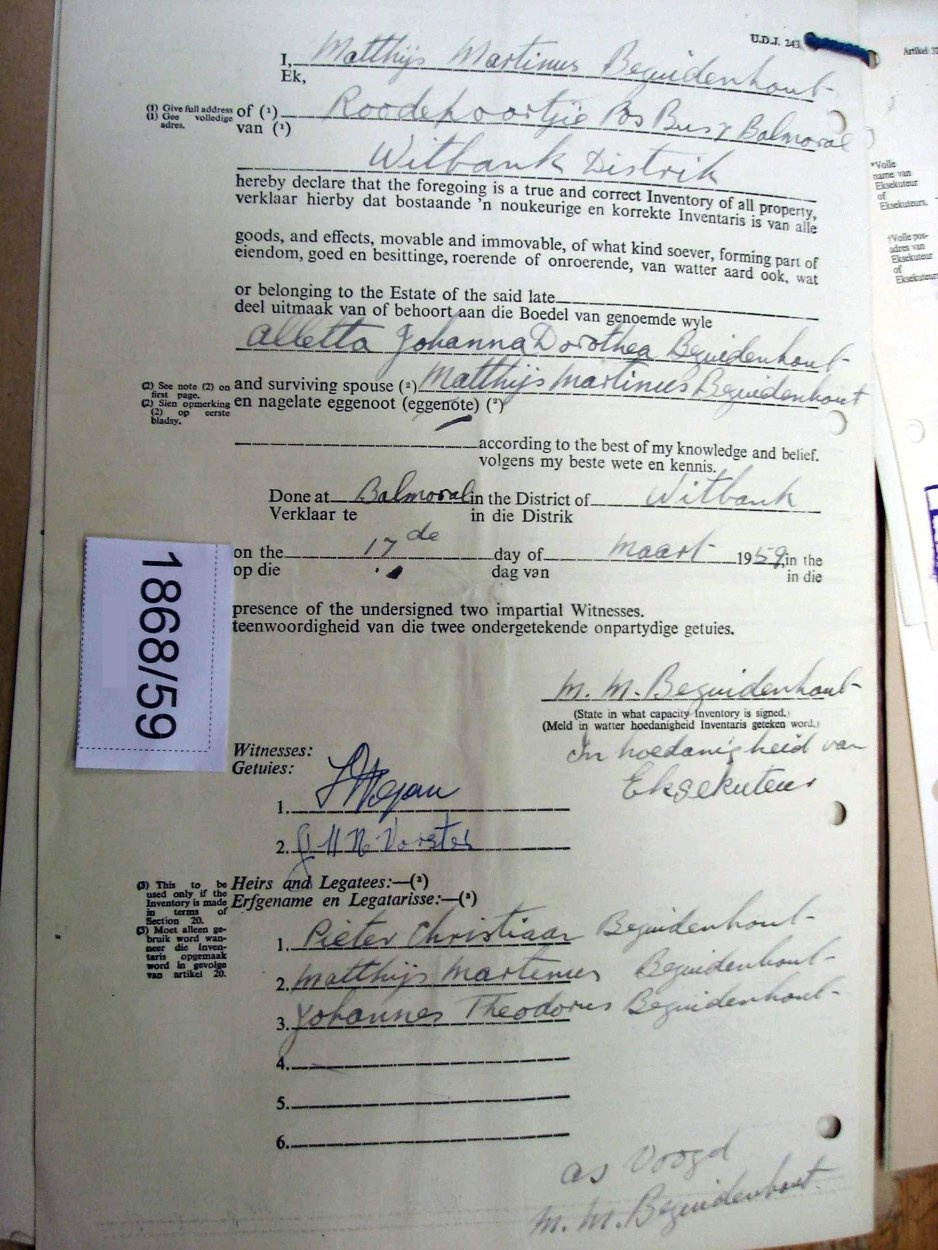 U.D.J. 243
I, Matthijs Martinus Bezuidenhout
Ek,
(1) Give full address of (1) Roodepoortjie Pos Bus 7 Balmoral
(1) Gee volledige adres. van (1)
Witbank Distrik
hereby declare that the foregoing is a true and correct Inventory of all property,
verklaar hierby dat bostaande 'n noukeurige en korrekte Inventaris is van alle
goods, and effects, movable and immovable, of what kind soever, forming part of
eiendom, goed en besittinge, roerende of onroerende, van watter aard ook, wat
or belonging to the Estate of the said late
deel uitmaak van of behoort aan die Boedel van genoemde wyle
Alletta Johanna Dorothea Bezuidenhout
(2) See note (2) on first page.
and surviving spouse (²) Matthijs Martinus Bezuidenhout
(2) Sien opmerking (2) op eerste bladsy.
en nagelate eggenoot (eggenote) (²)
according to the best of my knowledge and belief.
volgens my beste wete en kennis.
Done at Balmoral in the District of Witbank
Verklaar te in die Distrik
on the 17 de day of Maart 1959, in the
op die dag van in die
presence of the undersigned two impartial Witnesses.
teenwoordigheid van die twee ondergetekende onpartydige getuies.
1868/59
M. M. Bezuidenhout
(State in what capacity Inventory is signed.)
(Meld in watter hoedanigheid Inventaris geteken word.)
In hoedanigheid van
Eksekuteur
Witnesses:
Getuies:
1.
2. J H N Vorster
(3) This to be used only if the Inventory is made in terms of Section 20.
(3) Moet alleen gebruik word wanneer die Inventaris opgemaak word in gevolge van artikel 20.
Heirs and Legatees:—(³)
Erfgename en Legatarisse:—(³)
1. Pieter Christiaan Bezuidenhout
2. Matthijs Martinus Bezuidenhout
3. Johannes Theodorus Bezuidenhout
4.
5.
6.
as Voogd
M. M. Bezuidenhout
Artikel
*Volle
name van
Eksekuteur
of
Eksekuteurs.
†Volle pos-
adres van
Eksekuteur
of
Eksekuteurs